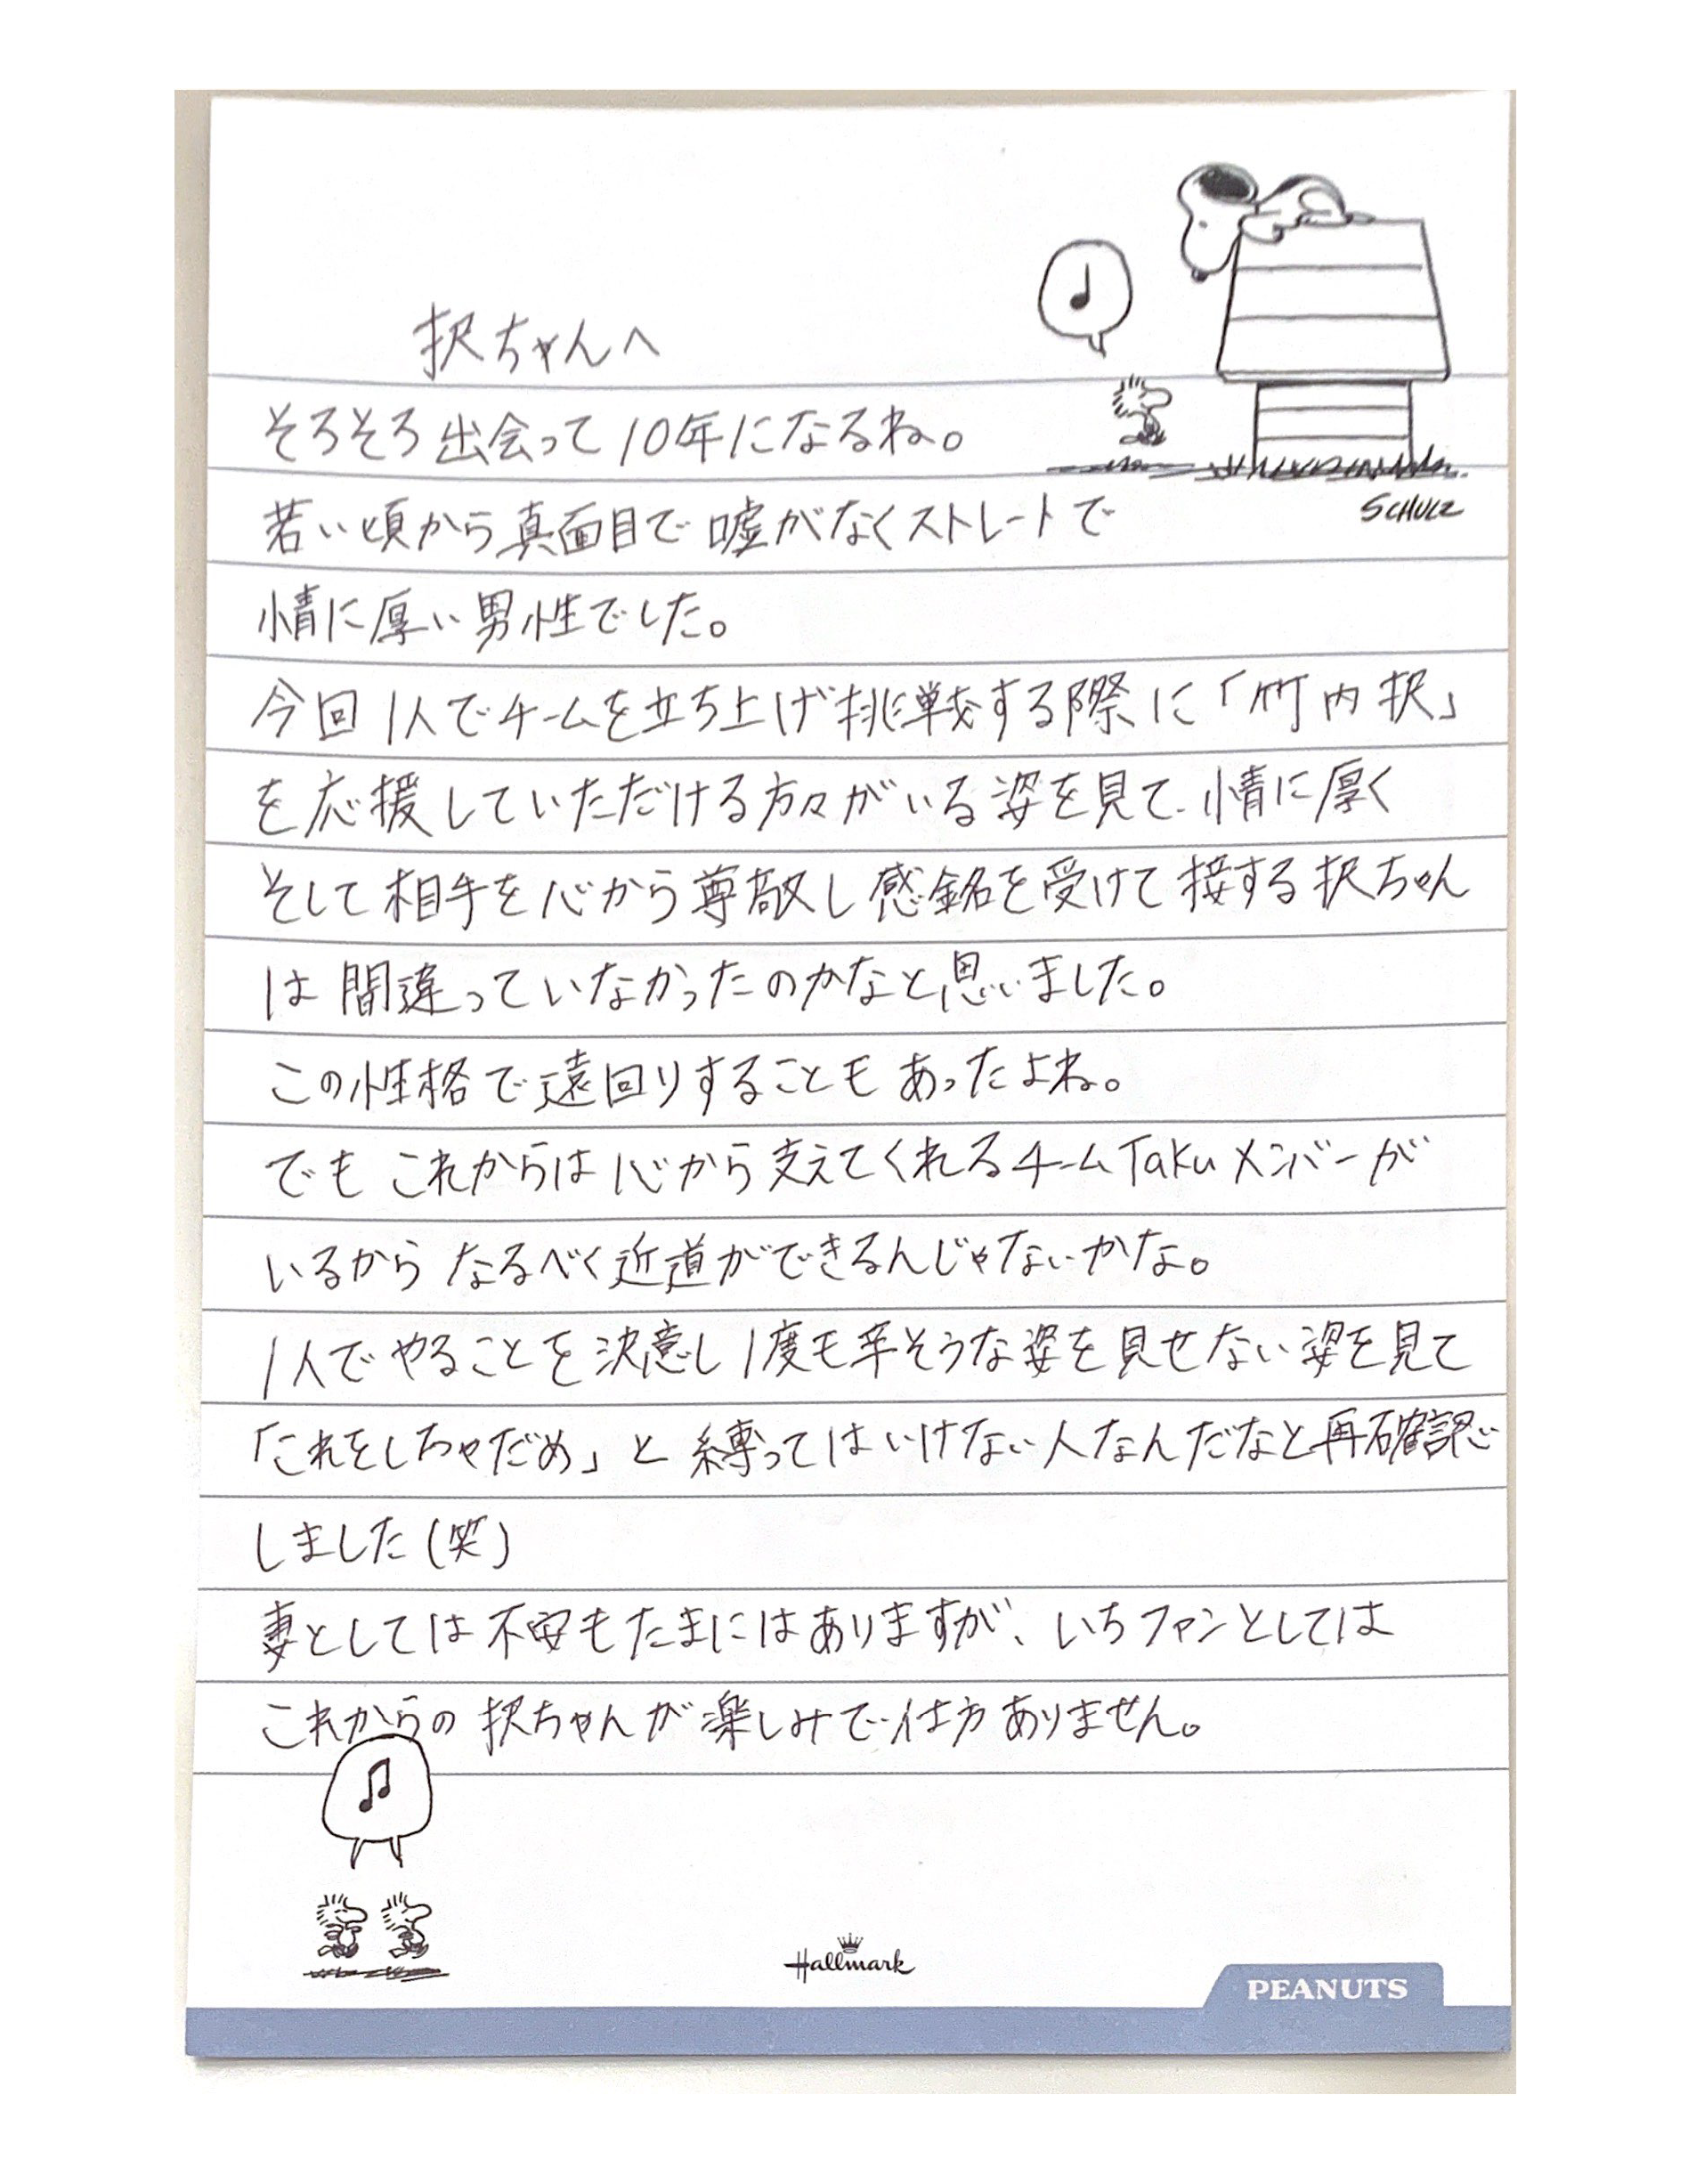 択ちゃんへ
そろそろ出会って10年になるね。
SCHULZ
若い頃から真面目で嘘がなくストレートで
情に厚い男性でした。
今回1人でチームを立ち上げ挑戦する際に「竹内択」
を応援していただける方々がいる姿を見て、情に厚く
そして相手を心から尊敬し感銘を受けて接する択ちゃん
は間違っていなかったのかなと思いました。
この性格で遠回りすることもあったよね。
でもこれからは心から支えてくれるチームTakuメンバーが
いるからなるべく近道ができるんじゃないかな。
1人でやることを決意し1度も辛そうな姿を見せない姿を見て
「これをしちゃだめ」と縛ってはいけない人なんだなと再確認
しました(笑)
妻としては不安もたまにはありますが、いちファンとしては
これからの択ちゃんが楽しみで仕方ありません。
Hallmark
PEANUTS